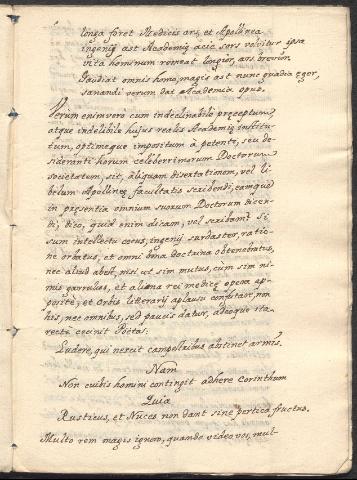 longa foret Medicis ars, et Apollinea
ingenij ast Academię acie sors volvitur ipsa
vita hominum remeat longior, ars brevior.
Gaudeat omnis homo, magis ast nunc gaudia eger,
sanandi verum dat Academia opus.
Verum enimvero cum indeclinabili pręceptum,
atque indelibile hujus realis Academię institu-
tum, optimeque impositum à petente, seu de-
siderenti horum celeberrimorum Doctorum
societatum, sit, aliquam disertationem, vel li-
bilum Apollineę facultatis scribendi, eamque
in pręsentia omnium suorum Doctorum dicen-
di; dico, quid enim dicam, vel scribam? si
sum intellectu cœcus, ingenij surdaster, ratio-
ne orbatus, et omni bina doctrina obtenebratus,
nec aliud abest, nisi ut sim mutus, cum sim ni-
mis garrulus, et aliena rei medicę opera ap-
positę; et Orbis Litterarij aplausu conspitair, non
his, nec omnibus, sed paucis datur, adeoque sta-
recte cecinit Poetas.
Ludere, qui nescit campestribus abstinet armis.
Nam
Non cuibis homini contingit adhere Corinthum
Quia
Rusticus, et Nuces non dant sine pertica fructus.
Multo rem magis ignoro, quando video vos, mul-